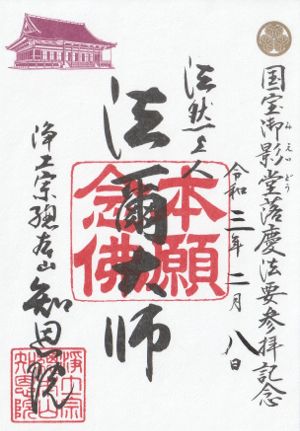 国宝御影堂落慶法要参拝記念
みえいどう
令和三年二月八日
法然上人
法爾大師
本願
念佛
浄土宗總本山
知恩院
浄土宗
總本山
知恩院